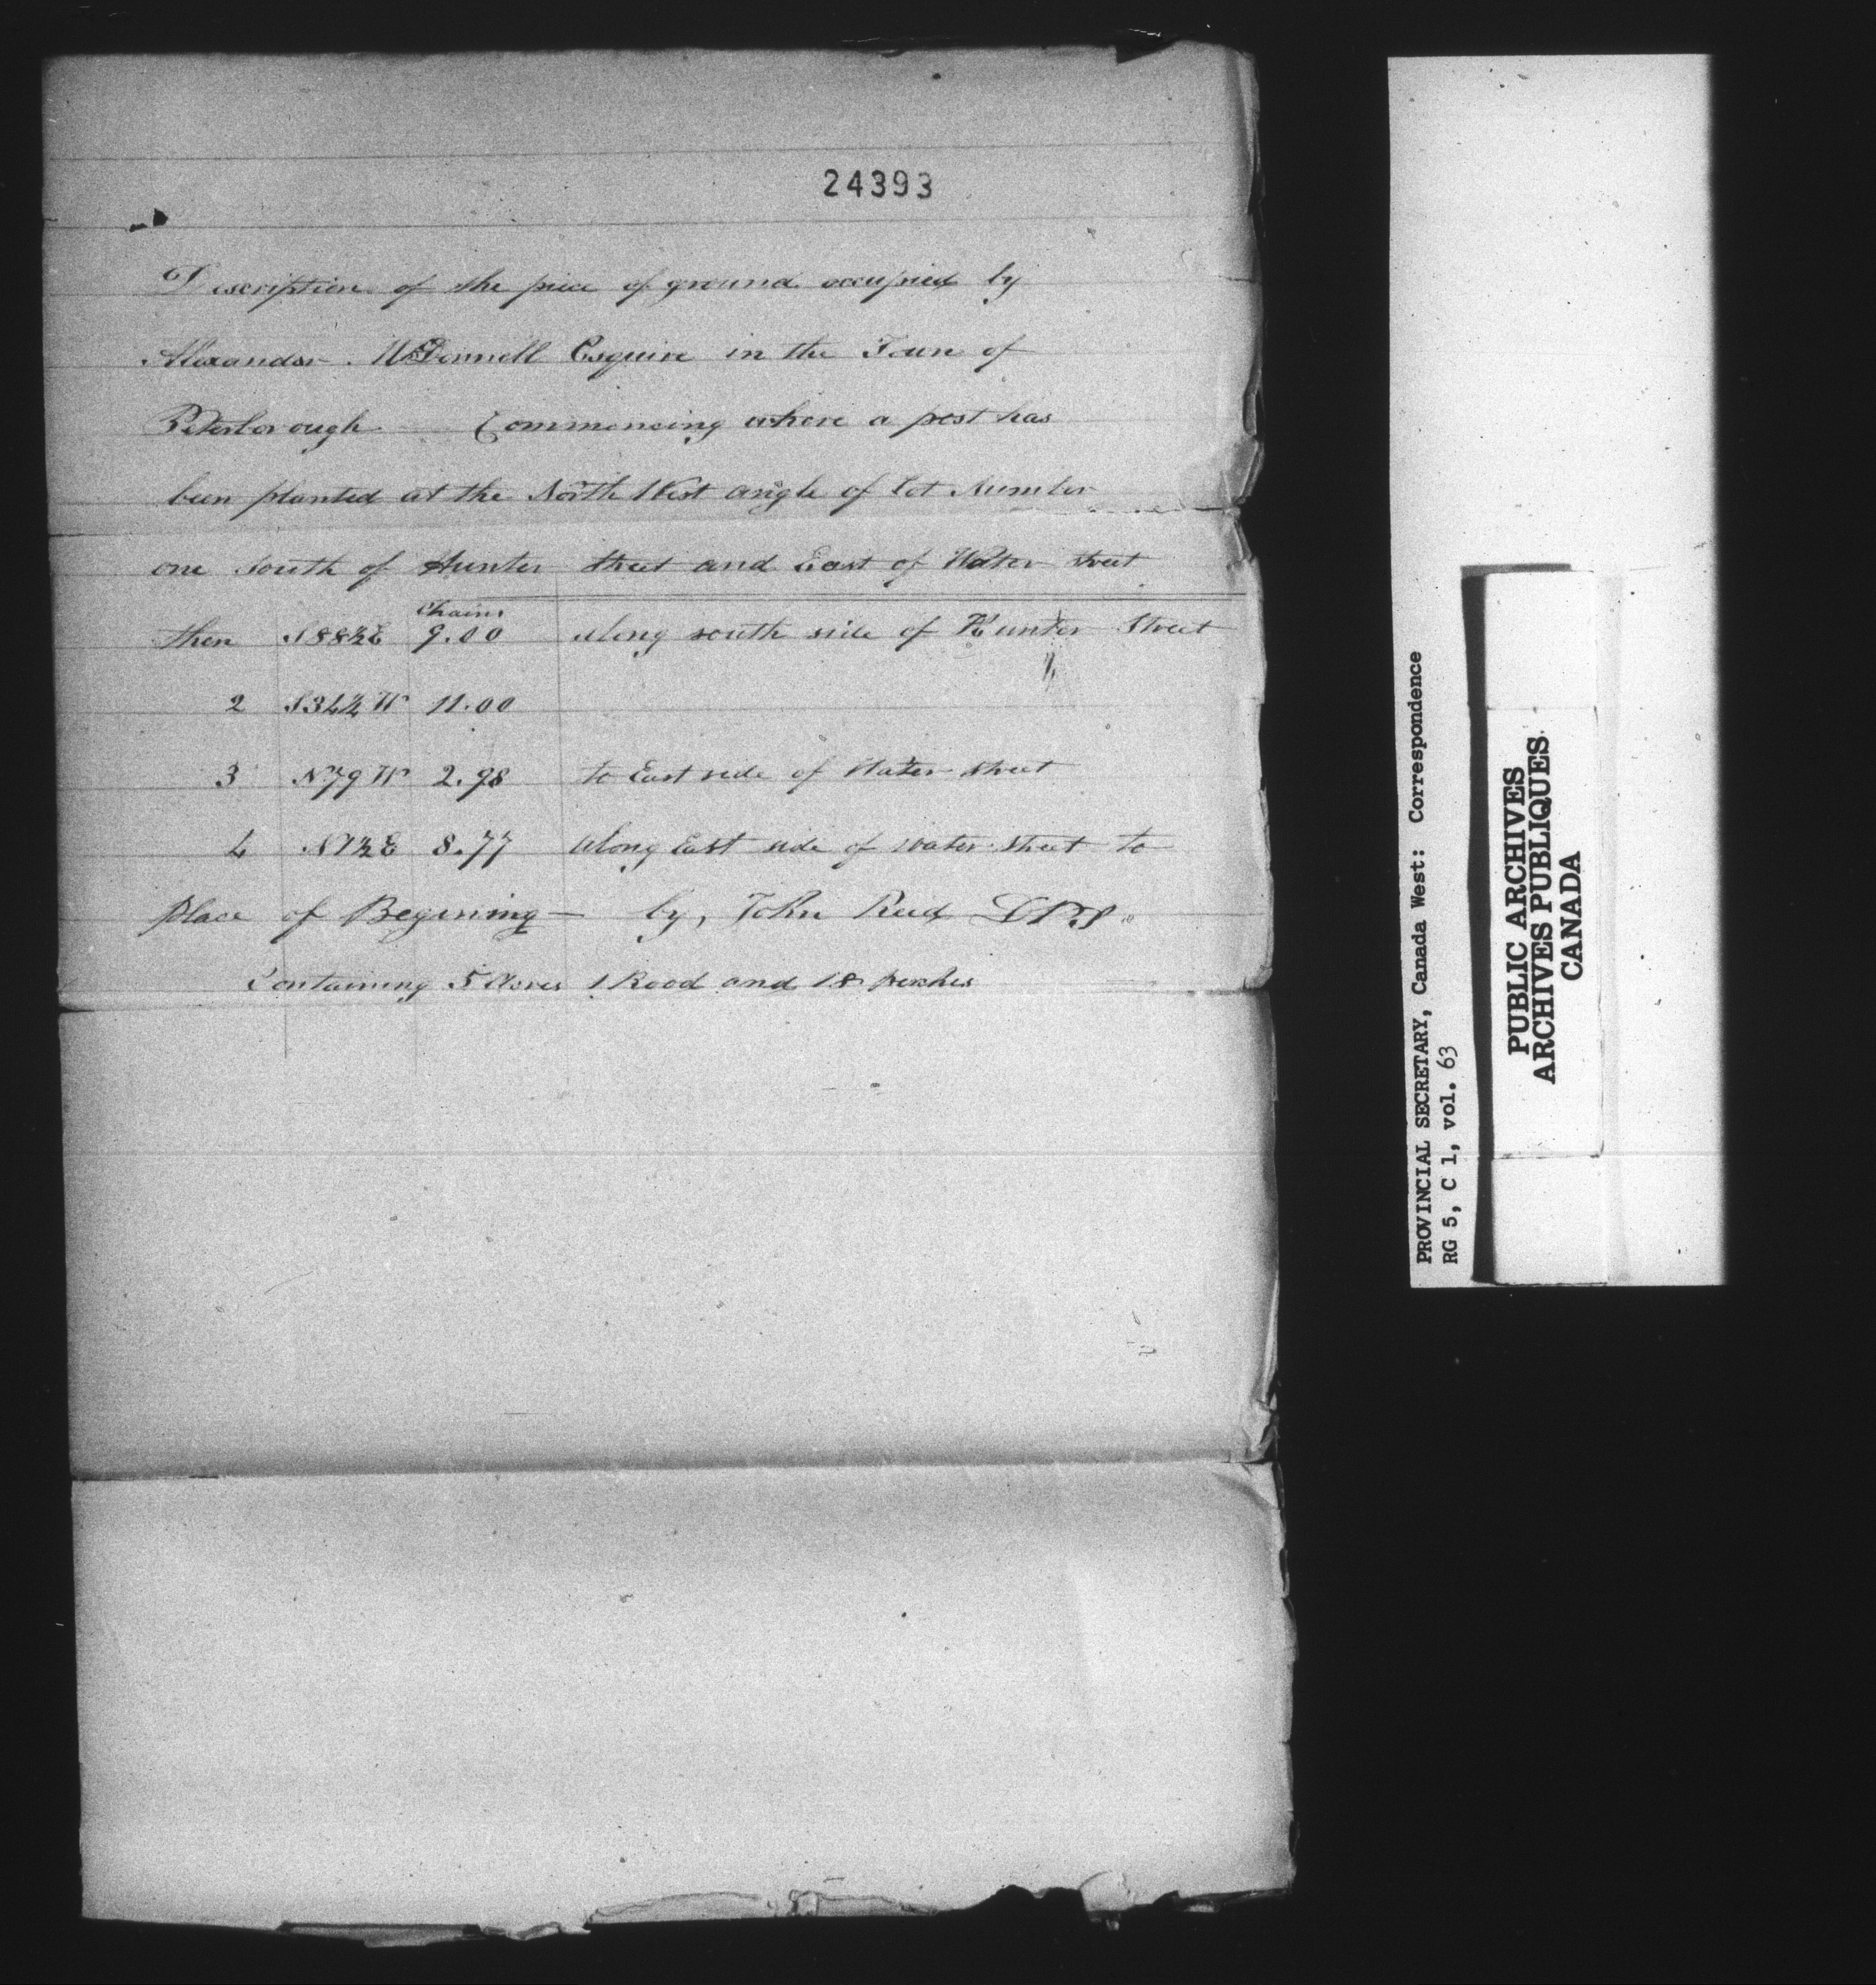 24393
Description of the piece of ground occupied by
Alexander McDonnell Esquire in the Town of
Peterborough — Commencing where a post has
been planted at the North West angle of lot Number
one South of Hunter Street and East of Water Street
Chains
then S88½E 9.00 along south side of Hunter Street
2 S34½W 11.00
3 N79W 2.98 to East side of Water Street
4 N1½E 8.77 along East side of Water Street to
place of Begining — by, John Reid DPS.
Containing 5 Acres 1 Rood and 18 perches
PROVINCIAL SECRETARY, Canada West: Correspondence
RG 5, C 1, vol. 63
PUBLIC ARCHIVES
ARCHIVES PUBLIQUES
CANADA